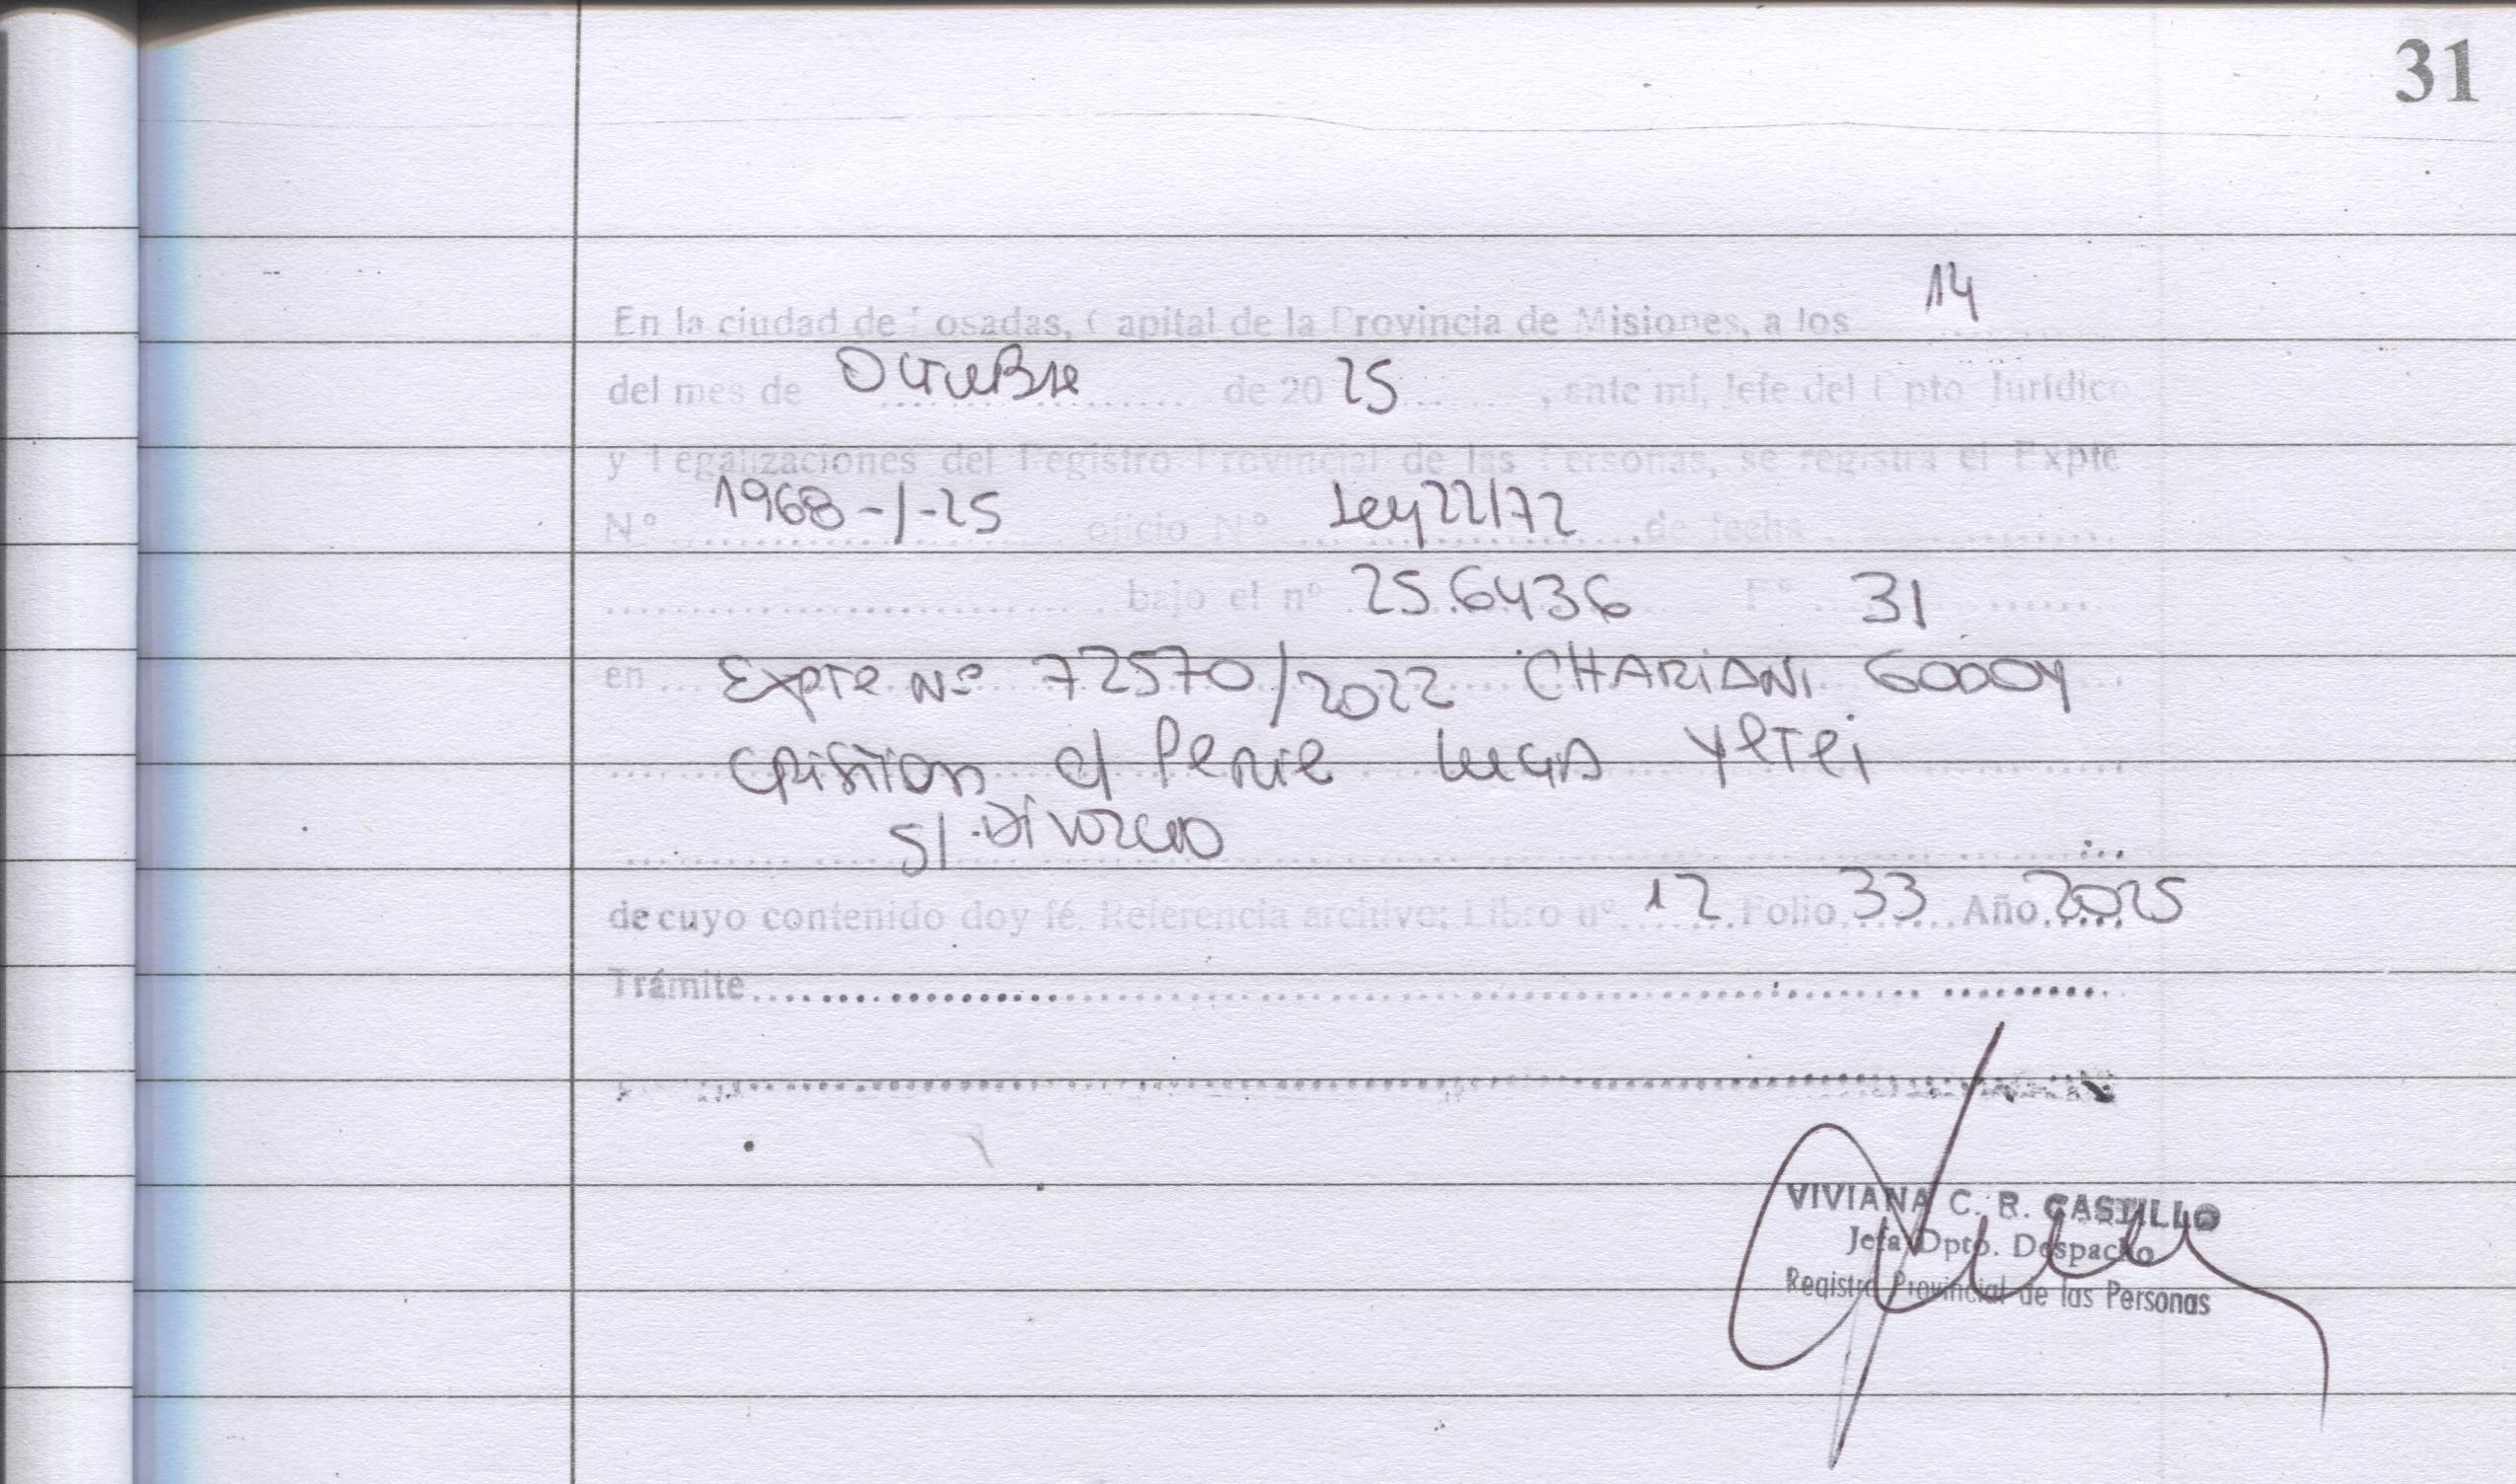 31
En la ciudad de Posadas, Capital de la Provincia de Misiones, a los 14
del mes de Octubre de 20 25 , ante mí, Jefe del Dpto Jurídico
y Legalizaciones del Registro Provincial de las Personas, se registra el Expte
Nº 1968-1-25 oficio Nº Ley 22172 de fecha
bajo el nº 25.6436 Fº 31
en Expte Nº 72570/2022 CHARIANI GODOY
Cristian c/
s/ Divorcio
de cuyo contenido doy fé. Referencia archivo: Libro nº 12 Folio 33 Año 2025
Trámite
VIVIANA C. R. CASTILLO
Jefa Dpto. Despacho
Registro Provincial de las Personas